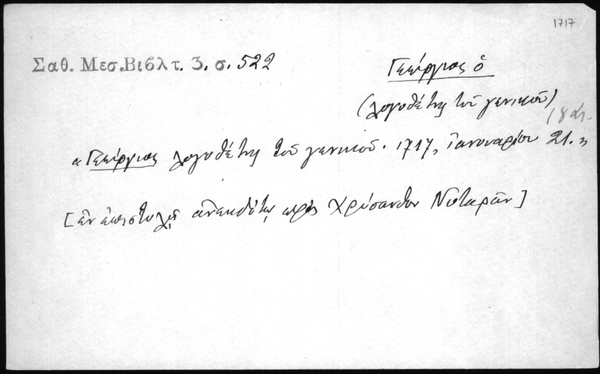 1717
Σαθ. Μεσ. Βιβλ τ. 3. σ. 522
Γεώργιος ὁ
(λογοθέτης τοῦ γενικοῦ)
«Γεώργιος λογοθέτης τοῦ γενικοῦ. 1717, ἰανουαρίου 21.»
[ἐν ἐπιστολῇ ἀνεκδότῳ πρὸς Χρύσανθον Νοταρᾶν]